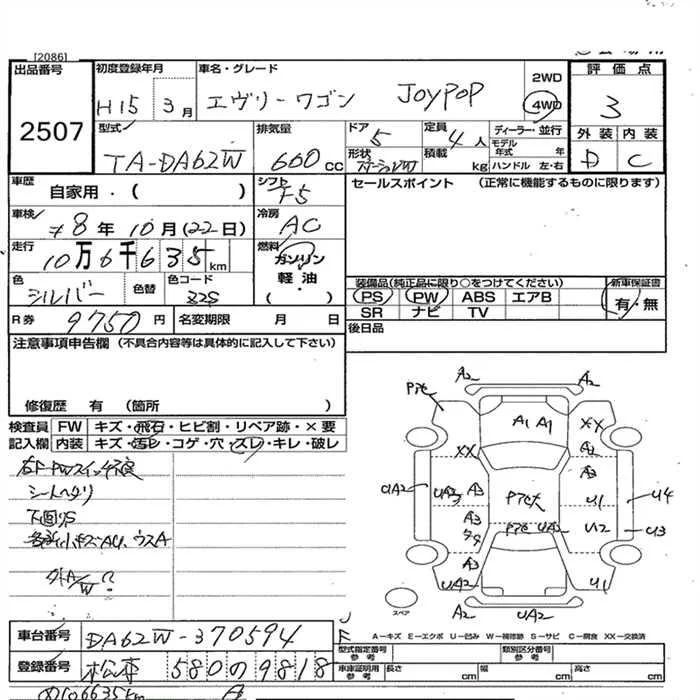 [2086]
出品番号
2507
初度登録年月
H15 3月
車名・グレード
エヴリーワゴン JOYPOP
2WD
4WD
評価点
3
外装 内装
D C
型式
TA-DA62W
排気量
660 cc
ドア
5
形状
定員
4人
積載
kg
ディーラー・並行
モデル年式 年
ハンドル 左・右
車歴
自家用・( )
シフト
F5
セールスポイント (正常に機能するものに限ります)
車検
8年 10月(22日)
冷房
AC
走行
10万6千635km
燃料
ガソリン
軽油
( ・ )
色
シルバー
色替
色コード
22S
装備品(純正品に限り○をつけてください)
新車保証書
PS PW ABS エアB
有・無
SR ナビ TV
R券 9750円
名変期限 月 日
後日品
注意事項申告欄(不具合内容等は具体的に記入して下さい)
修復歴 有 (箇所 )
検査員 FW キズ・飛石・ヒビ割・リペア跡・×要
記入欄 内装 キズ・汚レ・コゲ・穴・スレ・キレ・破レ
右F-PWスイッチ不良
シートヘタリ
下回リS
各所小キズAU、ウスA
外A/W?
A2 A2
A1 A1
XX
XX
A2
UA2
UA3 A3
A3
U1
U2
U4
U3
A3
UA2
U1
A2 UA2
スペア
A－キズ E－エクボ U－凹み W－補修跡 S－サビ C－腐食 XX－交換済
車台番号 DA62W-370594
登録番号 松本 580の9818
型式指定番号
参考
類別区分番号
参考
車庫証明用
参考
長さ cm 幅 cm 高さ cm
106635km